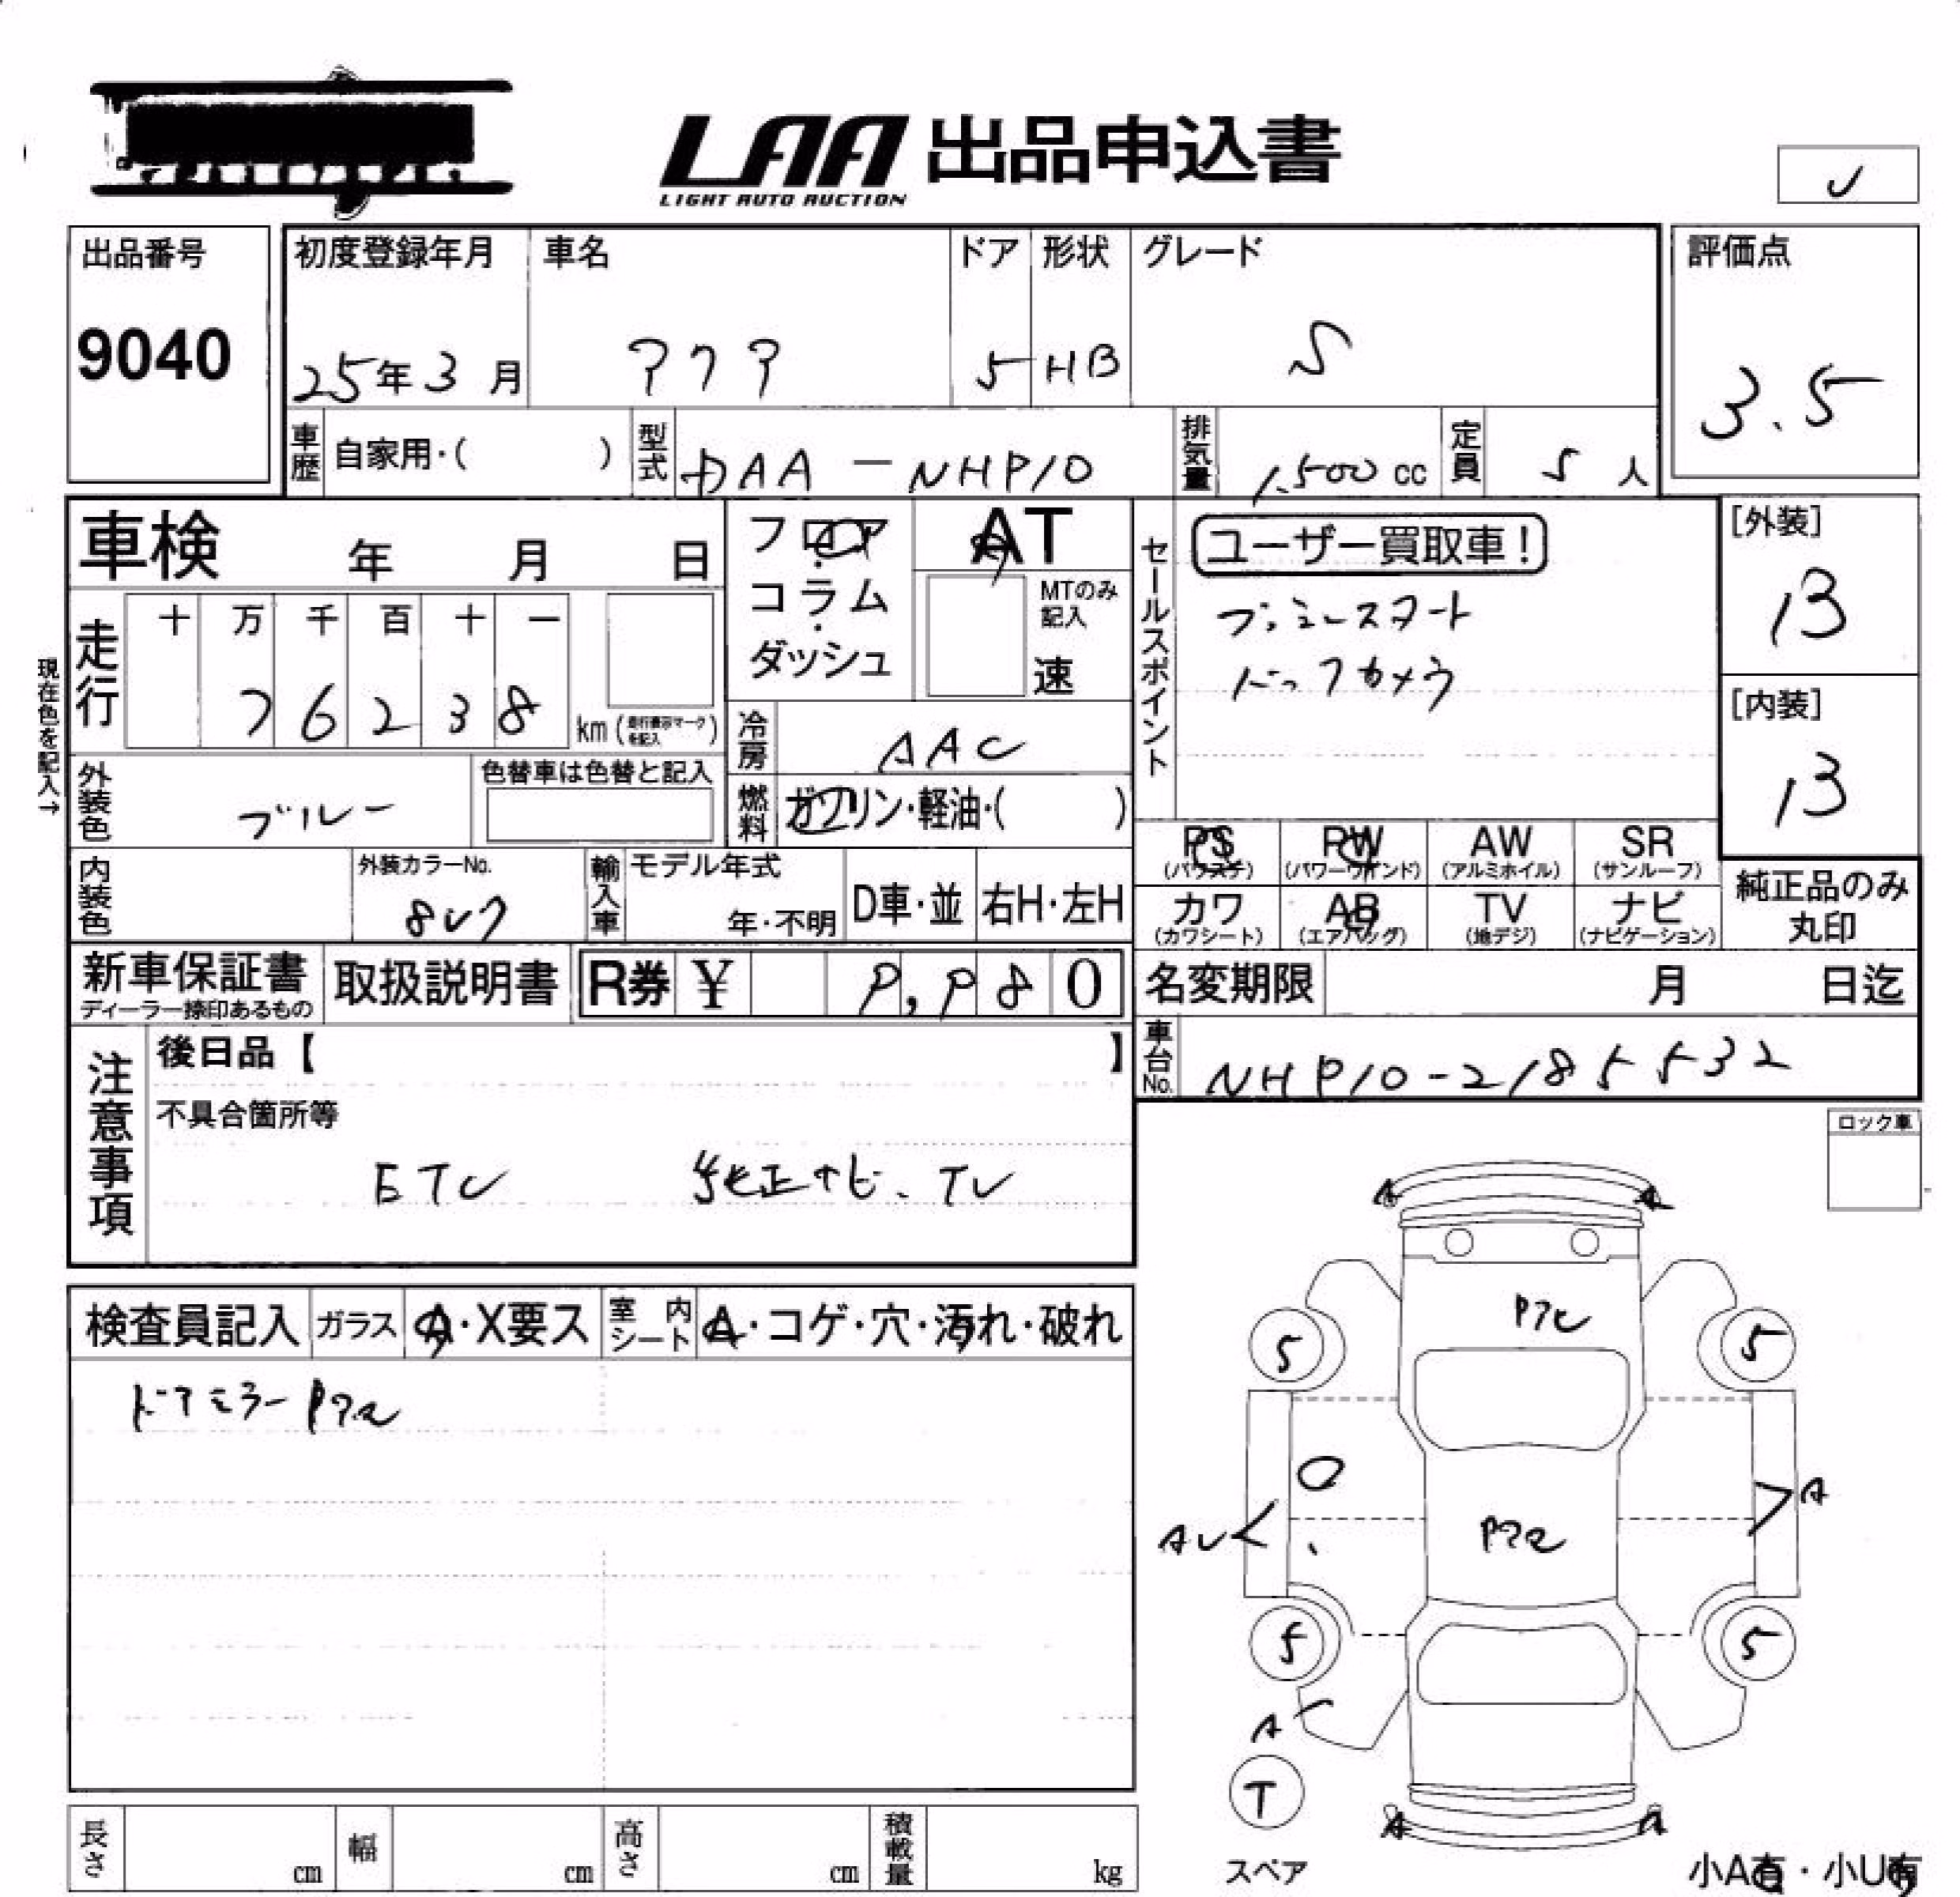 LAA 出品申込書
LIGHT AUTO AUCTION
出品番号
9040
初度登録年月
25年3月
車名
アクア
ドア
5
形状
HB
グレード
S
評価点
3.5
車歴 自家用・( )
型式 DAA-NHP10
排気量 1,500cc
定員 5人
車検 年 月 日
フロア
コラム
ダッシュ
AT
MTのみ記入
速
セールスポイント
ユーザー買取車!
プッシュスタート
バックカメラ
[外装]
13
[内装]
13
現在色を記入→
走行
十 万 千 百 十 一
7 6 2 3 8
km(走行表示マークを記入)
冷房 AAC
外装色 ブルー
色替車は色替と記入
燃料 ガソリン・軽油・( )
PS (パワステ)
PW (パワーウインド)
AW (アルミホイル)
SR (サンルーフ)
カワ (カワシート)
AB (エアバッグ)
TV (地デジ)
ナビ (ナビゲーション)
純正品のみ
丸印
内装色
外装カラーNo.
輸入車
モデル年式
年・不明
D車・並
右H・左H
新車保証書
ディーラー捺印あるもの
取扱説明書
R券 ¥ 9,980
名変期限 月 日迄
車台No. NHP10-2185532
注意事項
後日品【 】
不具合箇所等
ETC 純正ナビ、TV
ロック車
検査員記入
ガラス A・X要ス
室内シート A・コゲ・穴・汚れ・破れ
ドアミラー
A A
5 5
A
5 5
A
T
A A
スペア
小A有・小U有
長さ cm
幅 cm
高さ cm
積載量 kg